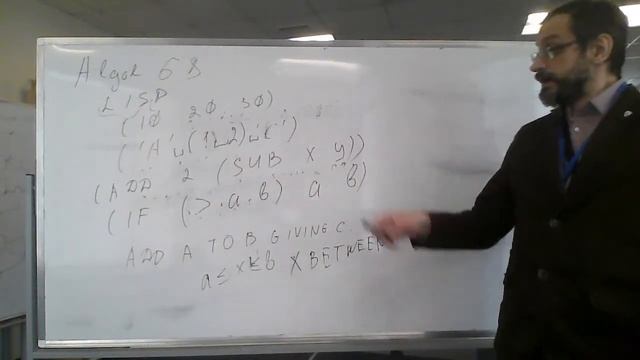 Algol 68
LISP
(10 20 30)
('A' (1 2) 'K')
(ADD 2 (SUB X Y))
(IF (> a b) a b)
ADD A TO B GIVING C
a ≤ x ≤ b X BETWEEN